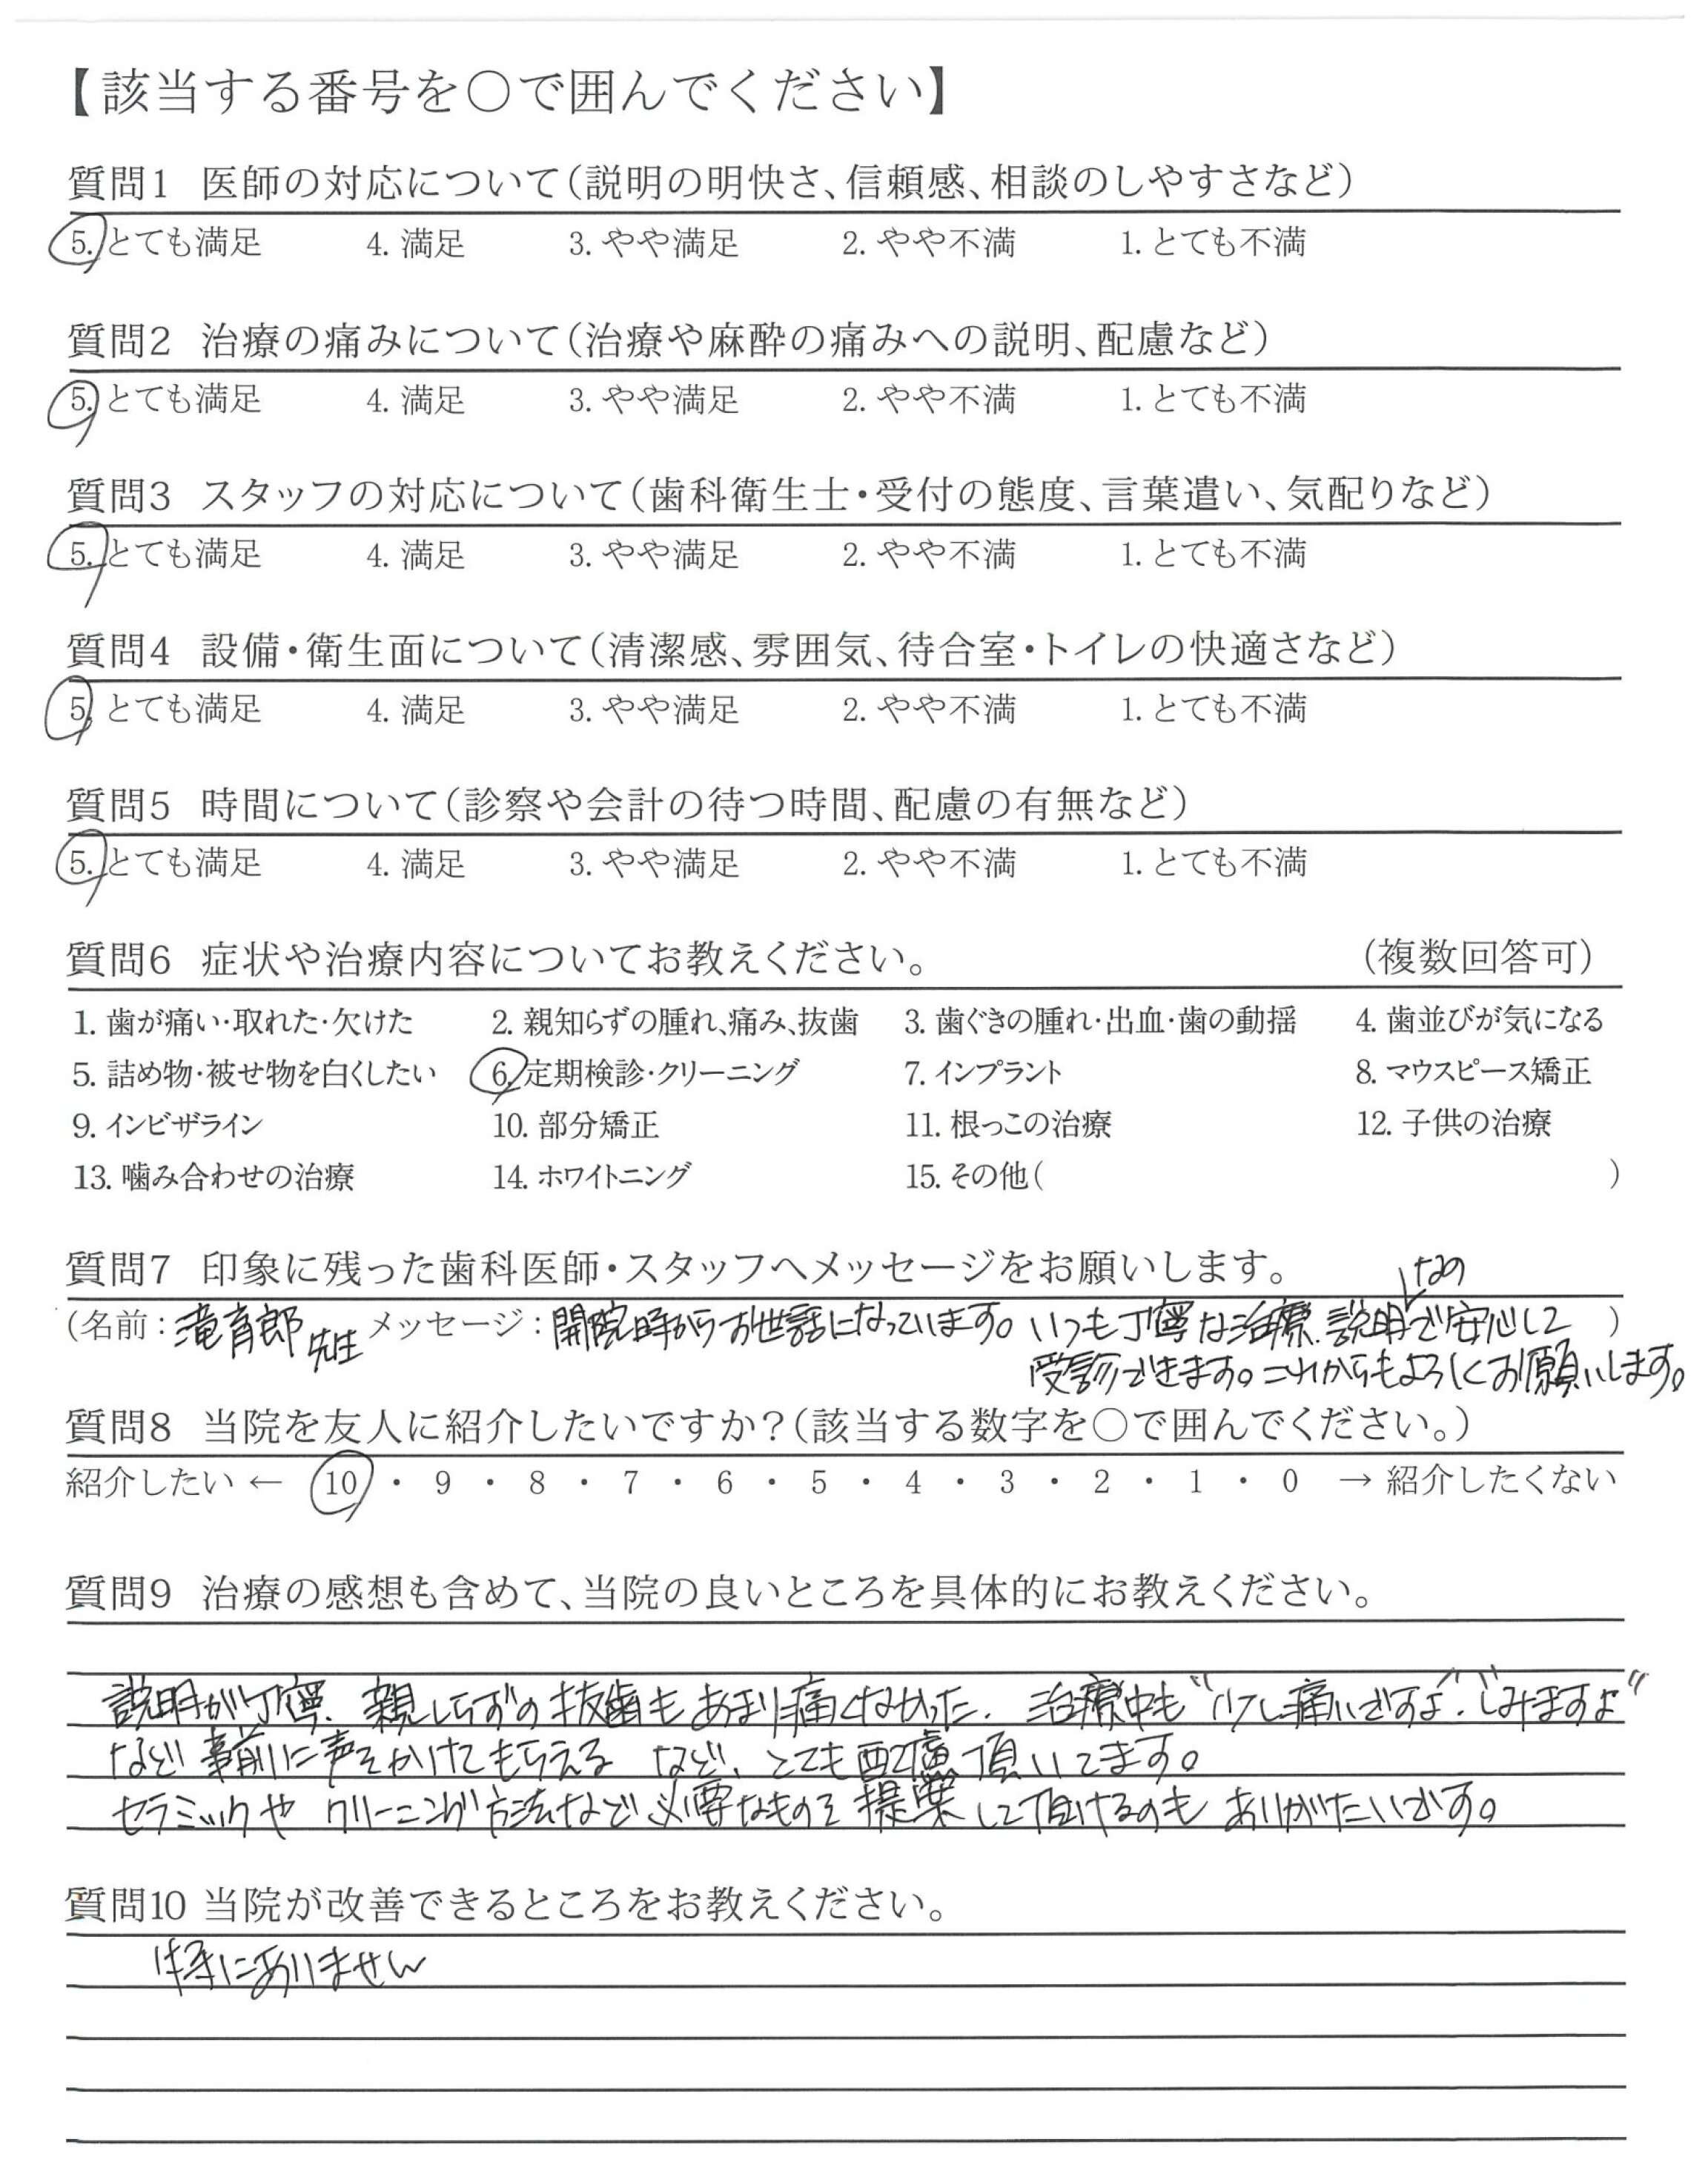 【該当する番号を○で囲んでください】
質問1 医師の対応について(説明の明快さ、信頼感、相談のしやすさなど)
5. とても満足 4. 満足 3. やや満足 2. やや不満 1. とても不満
質問2 治療の痛みについて(治療や麻酔の痛みへの説明、配慮など)
5. とても満足 4. 満足 3. やや満足 2. やや不満 1. とても不満
質問3 スタッフの対応について(歯科衛生士・受付の態度、言葉遣い、気配りなど)
5. とても満足 4. 満足 3. やや満足 2. やや不満 1. とても不満
質問4 設備・衛生面について(清潔感、雰囲気、待合室・トイレの快適さなど)
5. とても満足 4. 満足 3. やや満足 2. やや不満 1. とても不満
質問5 時間について(診察や会計の待つ時間、配慮の有無など)
5. とても満足 4. 満足 3. やや満足 2. やや不満 1. とても不満
質問6 症状や治療内容についてお教えください。 (複数回答可)
1. 歯が痛い・取れた・欠けた 2. 親知らずの腫れ、痛み、抜歯 3. 歯ぐきの腫れ・出血・歯の動揺 4. 歯並びが気になる
5. 詰め物・被せ物を白くしたい 6. 定期検診・クリーニング 7. インプラント 8. マウスピース矯正
9. インビザライン 10. 部分矯正 11. 根っこの治療 12. 子供の治療
13. 噛み合わせの治療 14. ホワイトニング 15. その他( )
質問7 印象に残った歯科医師・スタッフへメッセージをお願いします。
(名前:滝育郎先生 メッセージ:開院時からお世話になっています。いつも丁寧な治療、説明なので安心して )
受診できます。これからもよろしくお願いします。
質問8 当院を友人に紹介したいですか?(該当する数字を○で囲んでください。)
紹介したい ← 10 ・ 9 ・ 8 ・ 7 ・ 6 ・ 5 ・ 4 ・ 3 ・ 2 ・ 1 ・ 0 → 紹介したくない
質問9 治療の感想も含めて、当院の良いところを具体的にお教えください。
説明が丁寧、親しらずの抜歯もあまり痛くなかった、治療中も“少し痛いですよ”“しみますよ”
など事前に声をかけてもらえる など、とても配慮頂いてます。
セラミックや クリーニング方法など必要なものを提案して頂けるのもありがたいです。
質問10 当院が改善できるところをお教えください。
特にありません